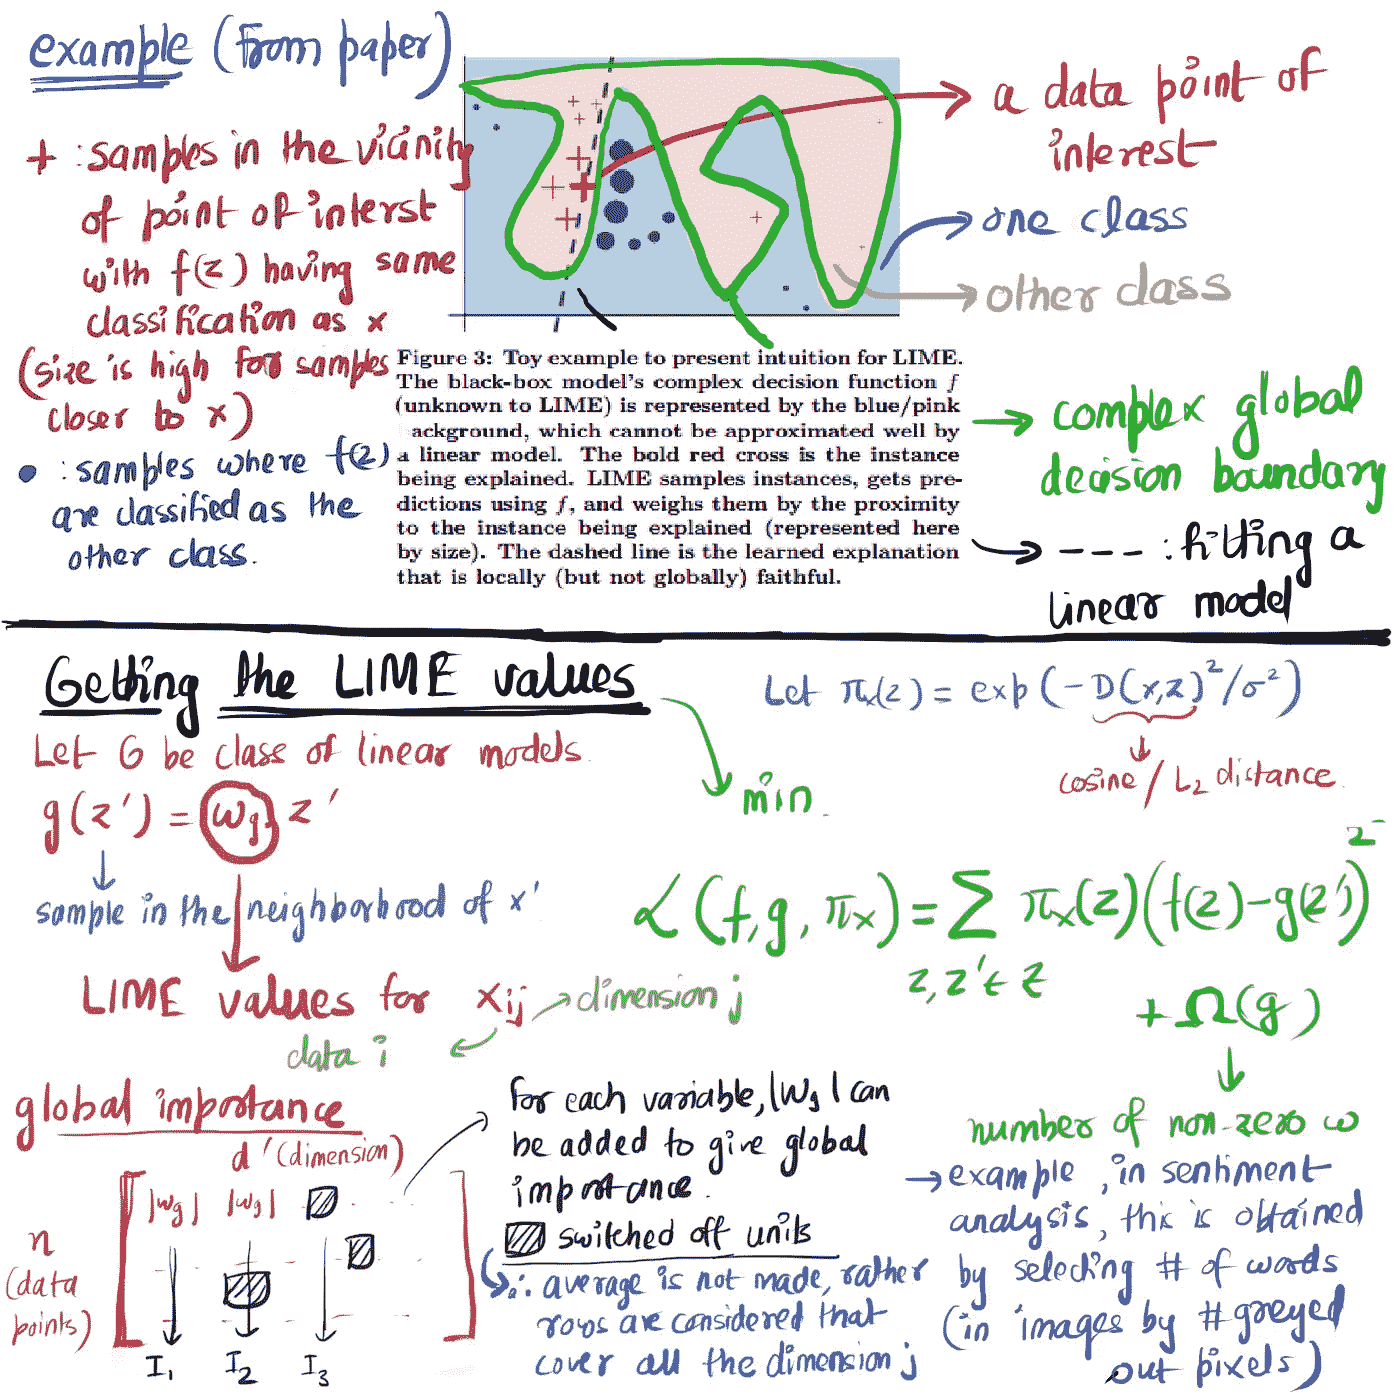 example (from paper)
+ : samples in the vicinity
of point of interst
with f(z) having same
classification as x
(size is high for samples
closer to x)
• : samples where f(z)
are classified as the
other class.
a data point of
interest
one class
other class
Figure 3: Toy example to present intuition for LIME.
The black-box model's complex decision function f
(unknown to LIME) is represented by the blue/pink
ackground, which cannot be approximated well by
a linear model. The bold red cross is the instance
being explained. LIME samples instances, gets pre-
dictions using f, and weighs them by the proximity
to the instance being explained (represented here
by size). The dashed line is the learned explanation
that is locally (but not globally) faithful.
complex global
decision boundary
---- : fitting a
linear model
Getting the LIME values
Let G be class of linear models.
g(z') = wg z'
sample in the neighborhood of x'
LIME values for xij
dimension j
data i
Let πx(z) = exp(-D(x,z)²/σ²)
cosine / L2 distance
min
L(f,g,πx) = Σ πx(z)(f(z)-g(z'))²
z,z' ∈ Z
+ Ω(g)
number of non-zero w
→ example, in sentiment
analysis, this is obtained
by selecting # of words
(in images by # greyed
out pixels)
global importance
d' (dimension)
|wg| |wg|
n
(data
points)
I1 I2 I3
for each variable, |wg| can
be added to give global
importance.
switched off units
∴ average is not made, rather
rows are considered that
cover all the dimension j